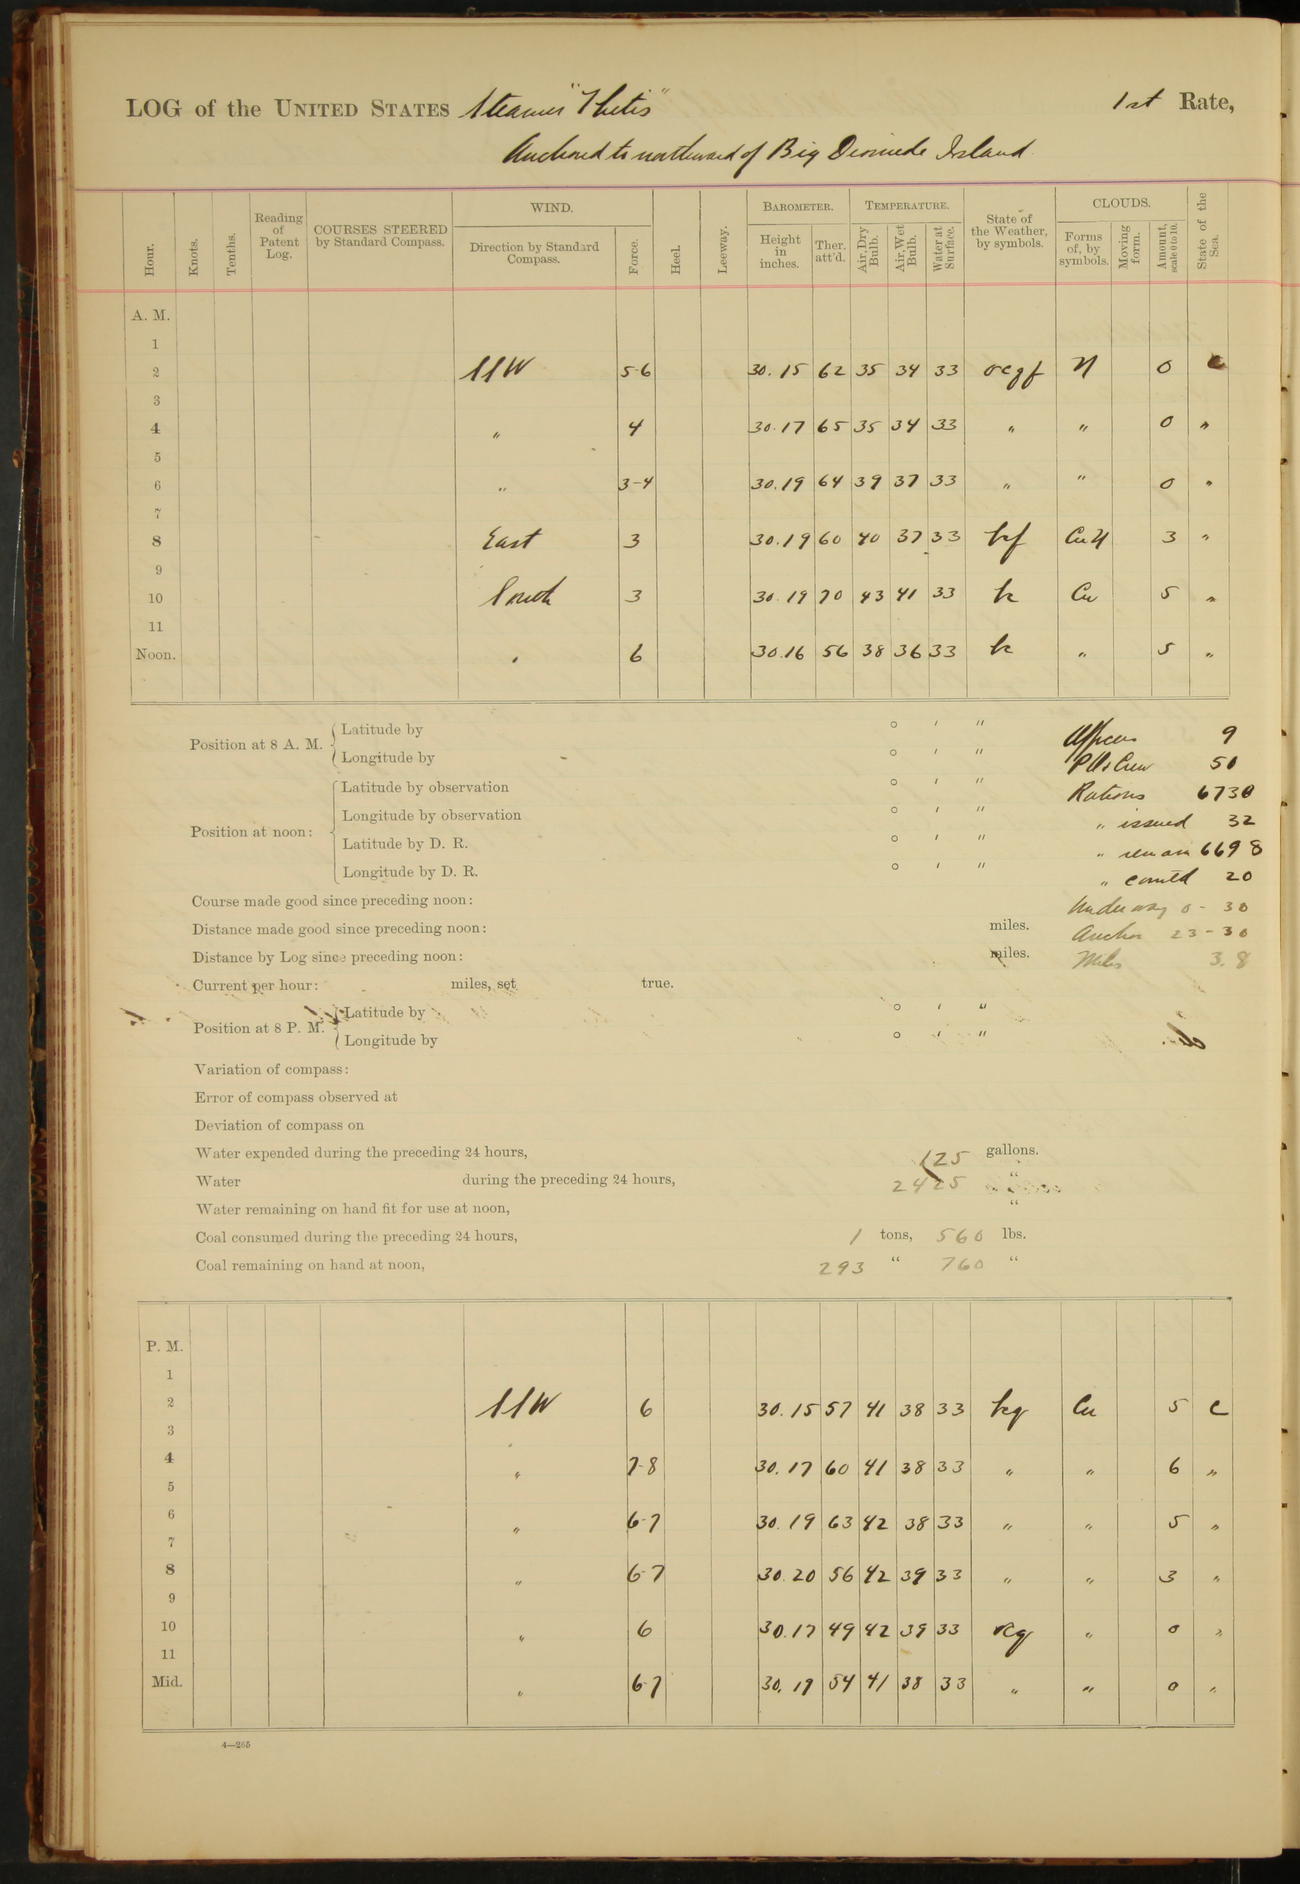 LOG of the UNITED STATES Steamer "Thetis" 1st Rate,
Anchored to northward of Big Diomede Island
Hour. Knots. Tenths. Reading of Patent Log. COURSES STEERED by Standard Compass. WIND. Direction by Standard Compass. Force. Heel. Leeway. BAROMETER. Height in inches. Ther. att'd. TEMPERATURE. Air, Dry Bulb. Air, Wet Bulb. Water at Surface. State of the Weather, by symbols. CLOUDS. Forms of, by symbols. Moving form. Amount, scale 0 to 10. State of the Sea.
A. M.
1
2 SSW 5-6 30.15 62 35 34 33 ocqf N 0 C
3
4 " 4 30.17 65 35 34 33 " " 0 "
5
6 " 3-4 30.19 64 39 37 33 " " 0 "
7
8 East 3 30.19 60 40 37 33 bcf CuN 3 "
9
10 South 3 30.19 70 43 41 33 bc Cu 5 "
11
Noon. " 6 30.16 56 38 36 33 bc " 5 "
Position at 8 A. M. Latitude by ° ' " Officers 9
Longitude by ° ' " P.O's Crew 50
Position at noon: Latitude by observation ° ' " Rations 6730
Longitude by observation ° ' " " issued 32
Latitude by D. R. ° ' " " remain 6698
Longitude by D. R. ° ' " " com'td 20
Course made good since preceding noon: Underway 0-30
Distance made good since preceding noon: miles. Anchor 23-30
Distance by Log since preceding noon: miles. Miles 3.8
Current per hour: miles, set true.
Position at 8 P. M. Latitude by ° ' "
Longitude by ° ' "
Variation of compass:
Error of compass observed at
Deviation of compass on
Water expended during the preceding 24 hours, 125 gallons.
Water during the preceding 24 hours, 2425 "
Water remaining on hand fit for use at noon, "
Coal consumed during the preceding 24 hours, 1 tons, 560 lbs.
Coal remaining on hand at noon, 293 " 760 "
P. M.
1
2 SSW 6 30.15 57 41 38 33 bcq Cu 5 C
3
4 " 7-8 30.17 60 41 38 33 " " 6 "
5
6 " 6-7 30.19 63 42 38 33 " " 5 "
7
8 " 6-7 30.20 56 42 39 33 " " 3 "
9
10 " 6 30.17 49 42 39 33 ocq " 0 "
11
Mid. " 6-7 30.19 54 41 38 33 " " 0 "
4—265